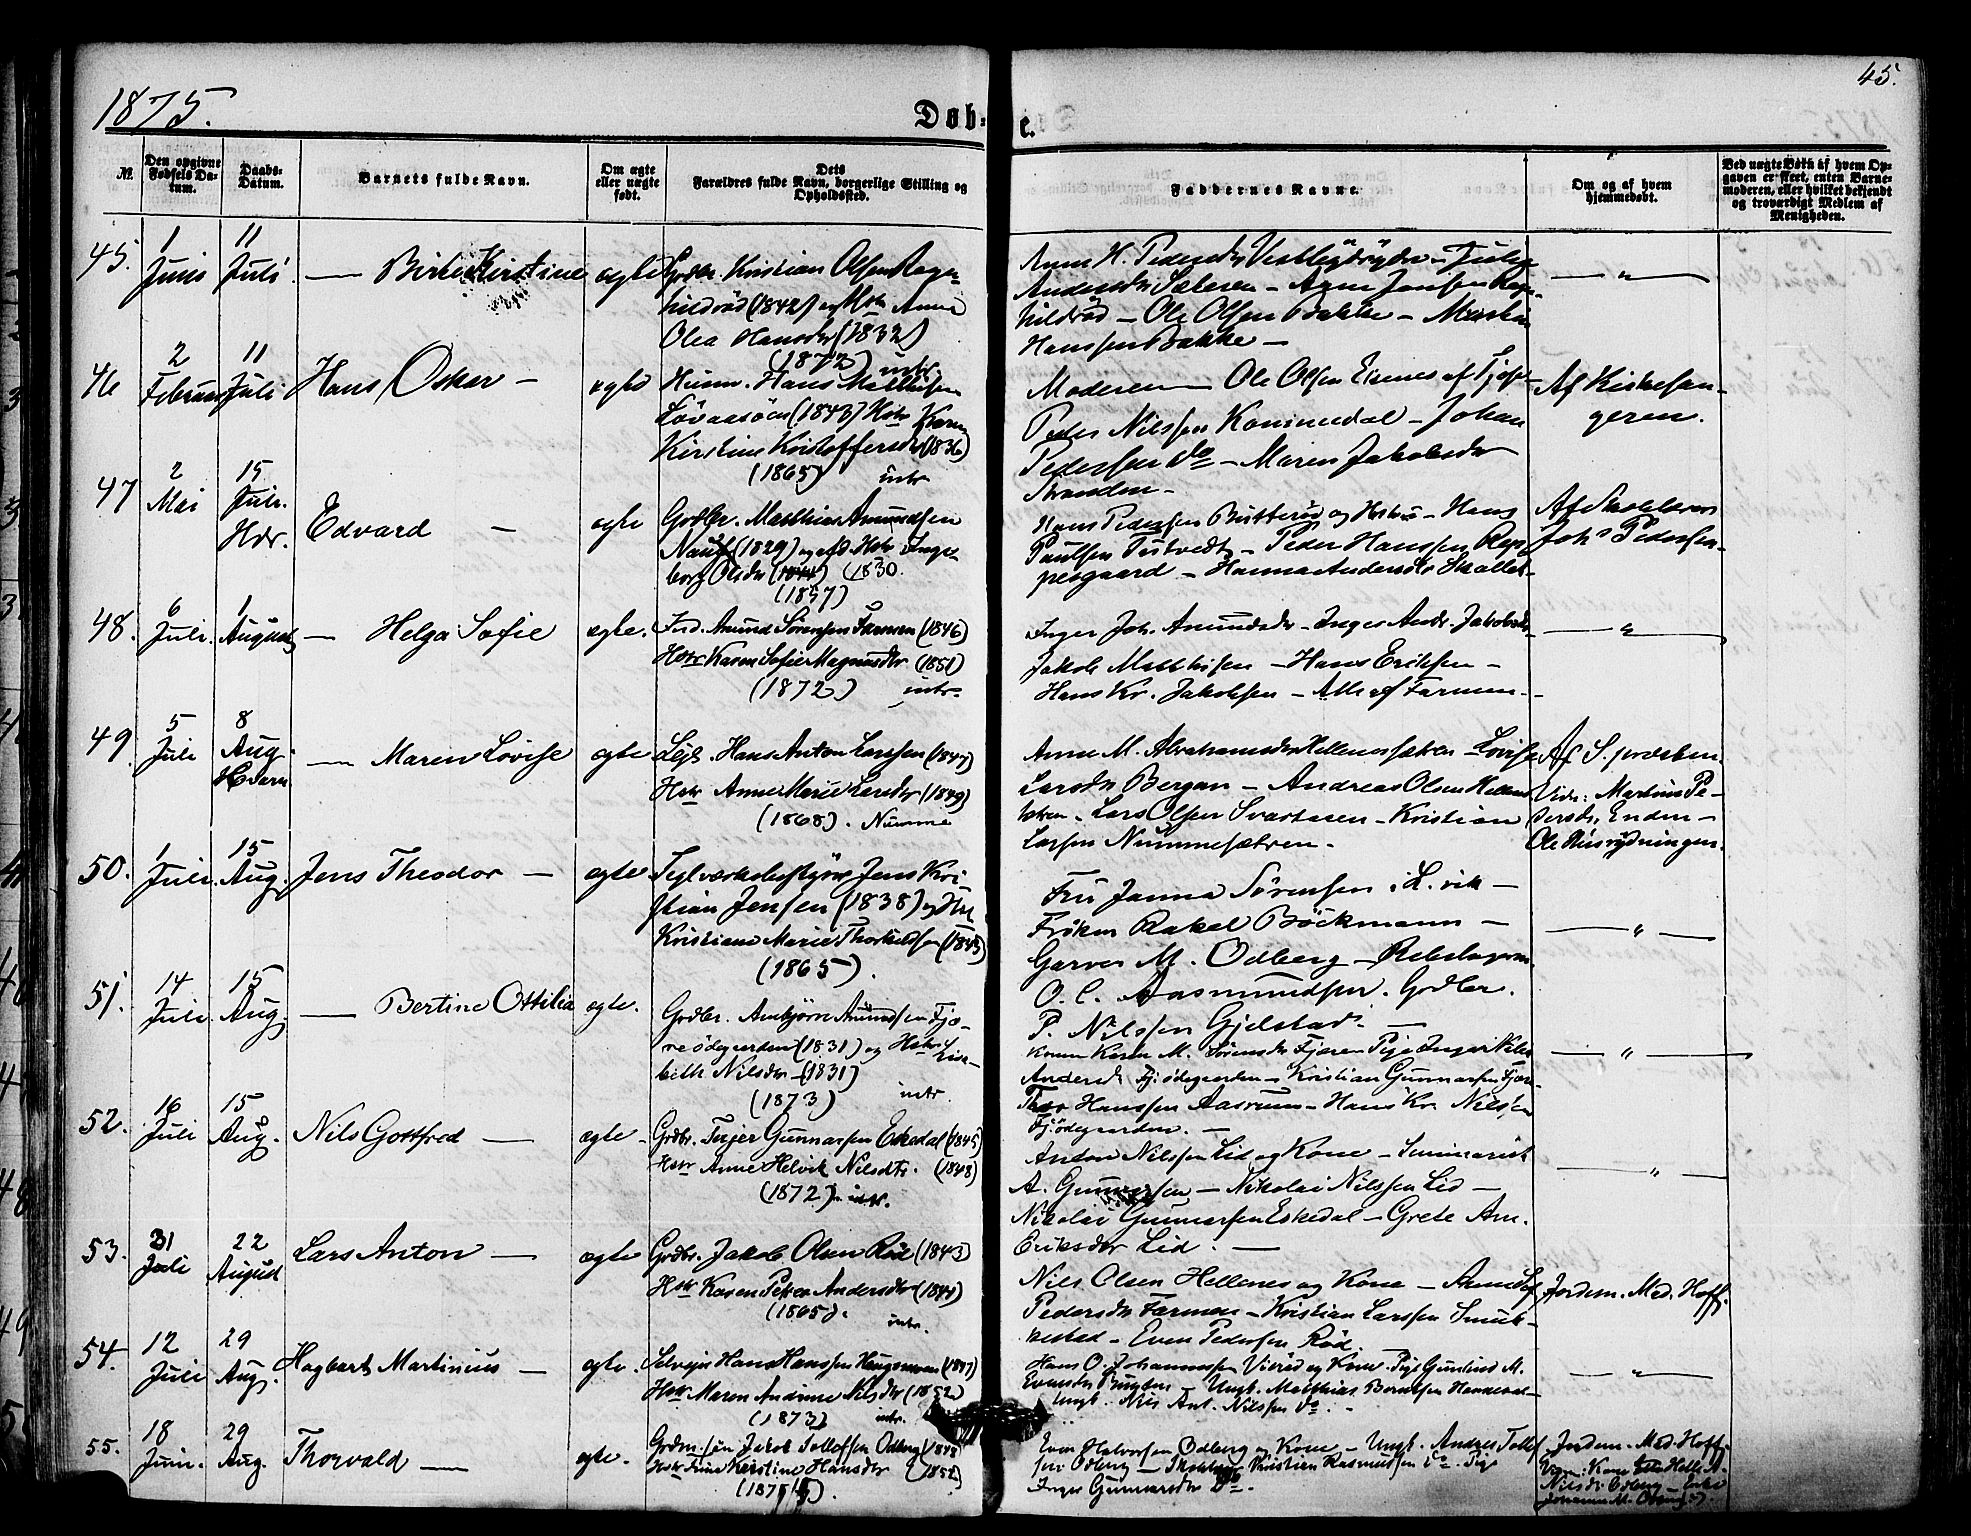 1875.
45.
Døb-
e.
№.
Den opgivne Fødsels Da-tum.
Daabs-Datum.
Barnets fulde Navn.
Om ægte eller uægte født.
Dets Forældres fulde Navn, borgerlige Stilling og Opholdssted.
Faddernes Navne.
Om og af hvem hjemmedøbt.
Ved uægte Børn af hvem Op-
gaven er skeet, enten Barne-
moderen, eller hvilket bekjendt
og troværdigt Medlem af
Menigheden.
45.
1 Juni
11 Juli
— Birte Kirstine
ægte
Grdbr. Kristian Olsen Rage-
hildrød (1842) og Hstr Anne
Olea Hansdr (1832)
(1872) intr.
Anne H. Pedersdr
Andersdr Sæteren – Anne Jansen Rage-
hildrød – Ole Olsen Bakke – Martin
Hanssen Bakke –
— " —
46
2 Februar
11 Juli
Hans Oskar –
ægte
Husm. Hans Matthisen
Løvaasen (1843) Hstr Karen
Kirstine Kristoffersdr (1836)
(1865) intr
Moderen – Ole Olsen Eknes af Tjose
Peder Nilssen Kommedal – Johan
Pederssen do – Maren Jakobsdr
Stranden –
Af Kirkesan-
geren.
47
2 Mai
15 Juli. Hdr.
Edvard –
ægte
Grdbr. Matthias Amundsen
Nauf (1829) og Hstr Inge-
borg Olsdr (1830.
(1857)
Hans Pederssen Butterød og Hstru – Hans
Paulsen Tutvedt – Peder Hanssen Rep-
pesgaard – Hanna Andersdr Skallet-
Af Skolelærer
Johs Pederssen
48.
6 Juli.
1 August
— Helga Sofie
ægte.
Ind. Amund Sørensen Farmen (1846)
Hstr Karen Sofie Magnusdr (1851)
(1872) intr.
Inger Joh. Amundsdr – Inger Andr. Jakobsdr
Jakob Matthisen – Hans Eriksen –
Hans Kr. Jakobsen – Alle af Farmen. –
— " —
49
5 Juli
8 Aug. Hvarn
— Maren Lovise
ægte
Lejl. Hans Anton Larssen (1847)
Hstr Anne Marie Larsdr (1849)
(1868). Numme
Anne M. Abrahamsdr Hellenessætren – Lovise
Larsdr Bergan – Andreas Olsen Hellenes
sætren – Lars Olsen Svartaasen – Kristian
Larsen Nummesætren. –
Af S. jordeben.
Vidn: Martine Pe-
dersdr, Enden –
Ole Husrydningen.
50.
1 Juli.
15 Aug.
Jens Theodor –
ægte
Teglværksbestyrer Jens Kri-
stian Jensen (1838) og Hst
Kristiane Marie Thorkildsen (1843)
(1865).
Fru Janna Sørensen i L.vik –
Frøken Rakel Böckmann –
Garver M. Odberg –
O. C. Aasmundsen. Grdbr.
P. Nilssen Gjelstad. –
— " —
51.
14 Juli
15 Aug.
— Bertine Ottilia
ægte.
Grdbr. Anbjørn Amundssen Fjæ-
reødegaarden (1831) og Hstr Lise-
beth Nilsdr – (1831)
(1873) intr.
Konen Karen M. Sørensdr Fjæren Pige Inger Nils
Andersdr Fj: ødegaarden – Kristian Gunnarssen Fjær-
Thor Hanssen Aasrum – Hans Kr. Nilsen
Fj:ødegaarden. –
— " —
52.
16 Juli
15 Aug.
Nils Gottfred –
ægte –
Grdbr. Terjer Gunnarssen Eskedal (1845)
Hstr Anne Helvik Nilsdtr. (1843)
(1872) intr.
Anton Nilssen Lid og Kone – Seminarist
A. Gunnarsen – Nikolai Nilssen Lid –
Nikolai Gunnarssen Eskedal – Grete An.
Eriksdr Lid. –
— " —
53.
21 Juli
22 August
Lars Anton –
ægte
Grdbr. Jakob Olsen Rød (1843)
Hstr Karen Petrea Andersdr (1844)
(1865). intr.
Nils Olsen Hellenes og Kone – Anne Sof
Pedersdr Farmen – Kristian Larssen Smuk-
kestad – Even Pederssen Rød.
Jordem. Mad. Hoff.
54.
12 Juli
29 Aug.
Hagbart Martinius –
ægte.
Selvejer Hans Hanssen Haugsmoen (1847)
Hstr Maren Andrine Nilsdr (1852)
(1873) intr.
Hans O. Johannessen Vierød og Kone – Pige Gunhild M.
Evensdr – Ungk. Matthias Berntsen
Ungk. Nils Ant. Nilssen do. –
— " —
55.
18 Juni.
29 Aug.
Thorvald —
ægte.
Grdm. søn Jakob Tollefsen Odberg (1848
Hstr Kirstine Hansdr (1852)
Even Halvorssen Odberg og Kone – Ungk. Andres Tollef
sen Odberg – Kristian Rasmussen do. Pige
Inger Gunnarsdr do.
Jordem. Mad. Hoff –
Nilsdr Odberg –
Johanne M.